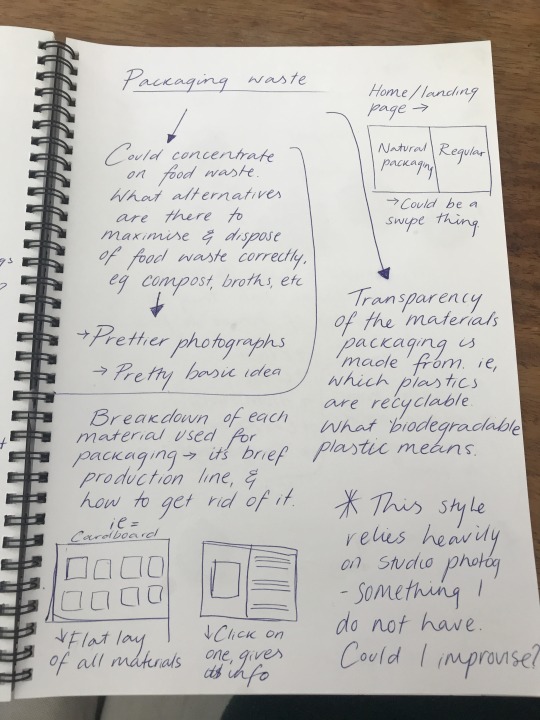 Packaging waste
Home/landing
page →
Natural
packaging
Regular
→ Could be a
swipe thing
Could concentrate
on food waste.
What alternatives
are there to
maximise & dispose
of food waste correctly,
eg compost, broths, etc
→ Prettier photographs
→ Pretty basic idea
Transparency
of the materials
packaging is
made from. ie,
which plastics
are recyclable.
What biodegradable
plastic means.
Breakdown of each
material used for
packaging → its brief
production line, &
how to get rid of it.
ie =
Cardboard
↓ Flat lay
of all materials
↓ Click on
one, gives
info
* This style
relies heavily
on studio photog
- something I
do not have.
Could I improvise?